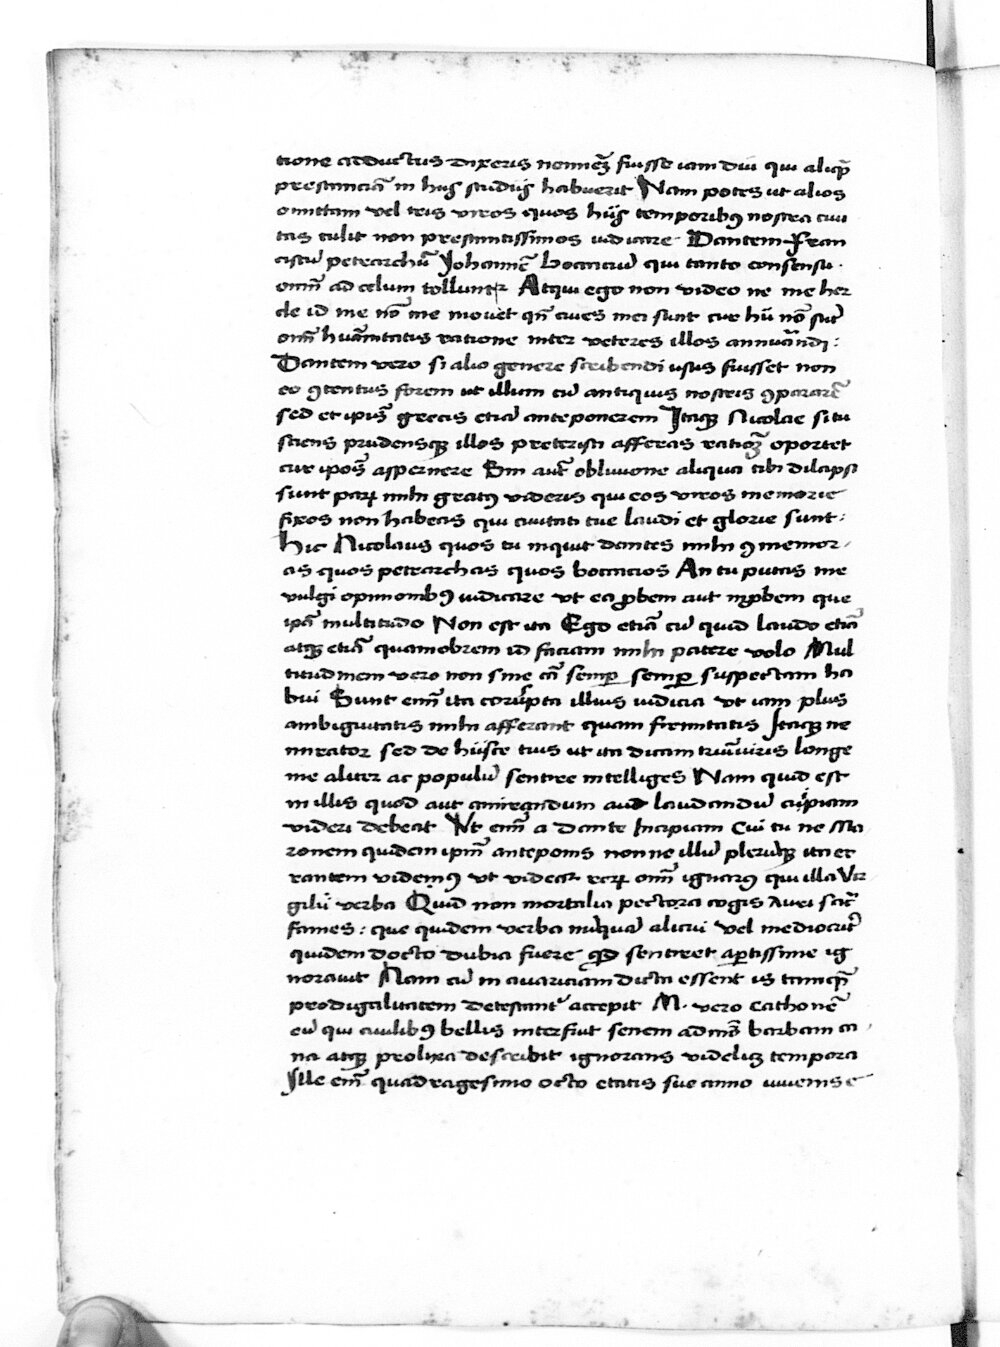 tione adductus dixeris neminẽ fuisse iam diu qui aliqͣ̃
prestanciã in hijs studijs habuerit Nam potes ut alios
omittam vel tris viros quos hijs temporibꝰ nostra ciui
tas tulit non prestantissimos iudicare Dantem Fran
ciscũ petrarchũ Johannẽ bocaciũ qui tanto consensu
om̃ ad celum tolluntᷣ Atqui ego non video ne me her
cle id me nõ me mouet qñ ciues mei sunt cur hij nõ sĩt
om̃ humanitatis ratione inter veteres illos annũandi:
Dantem vero si alio genere scribendi usus fuisset non
eo ꝯtentus forem ut illum cũ antiquis nostris ꝯpararẽ
sed et ipis̃ grecis etiã anteponerem Itaqꝫ Nicolae si tu
sciens prudensqꝫ illos preteristi afferas racioẽ oportet
cur ipõs aspernere Sin aut̃ obliuione aliqua tibi dilapsi
sunt parꝝ mihi gratꝰ videris qui eos viros memorie
fixos non habeas qui ciuitati tue laudi et glorie sunt:
hic Nicolaus quos tu inquit dantes mihi ꝯmemor
as quos petrarchas quos bocacios An tu putas me
vulgi opinionibꝰ iudicare ut ea ꝓbem aut inꝓbem que
ip̃a multitudo Non est ita Ego etiã cũ quid laudo etiã
atqꝫ etiã quamobrem id faciam mihi patere volo Mul
titudinem vero non sine cã semꝑ semꝑ suspectam ha
bui Sunt em̃ ita corrupta illius iudicia ut iam plus
ambiguitatis mihi afferant quam firmitatis Itaqꝫ ne
mirator sed de hijsce tuis ut ita dicam triũuiris longe
me aliter ac populũ sentire intelliges Nam quid est
in illis quod aut amirandum aut laudandũ cuipiam
videri debeat Ut em̃ a dante Incipiam Cui tu ne Ma
ronem quidem ipm̃ anteponis nonne illũ plerũqꝫ ita er
rantem videmꝰ ut videatᷣ rerꝝ om̃ ignarꝰ qui illa Vir
gilij verba Quid non mortalia pectora cogis Auri sacr̃
fames: que quidem verba nũquã alicui vel mediocrit̃
quidem docto dubia fuere qd sentiret aꝑtissime ig
norauit Nam cũ in auariciam dicta essent is tamqͣ̃
prodigalitatem detestantᷣ accepit M. vero Cathonẽ
eũ qui ciuilibꝰ bellis interfuit senem admõ barbam ca
na atqꝫ prolixa describit ignorans videlicꝫ tempora
Ille em̃ quadragesimo octo etatis sue anno iuuenis e